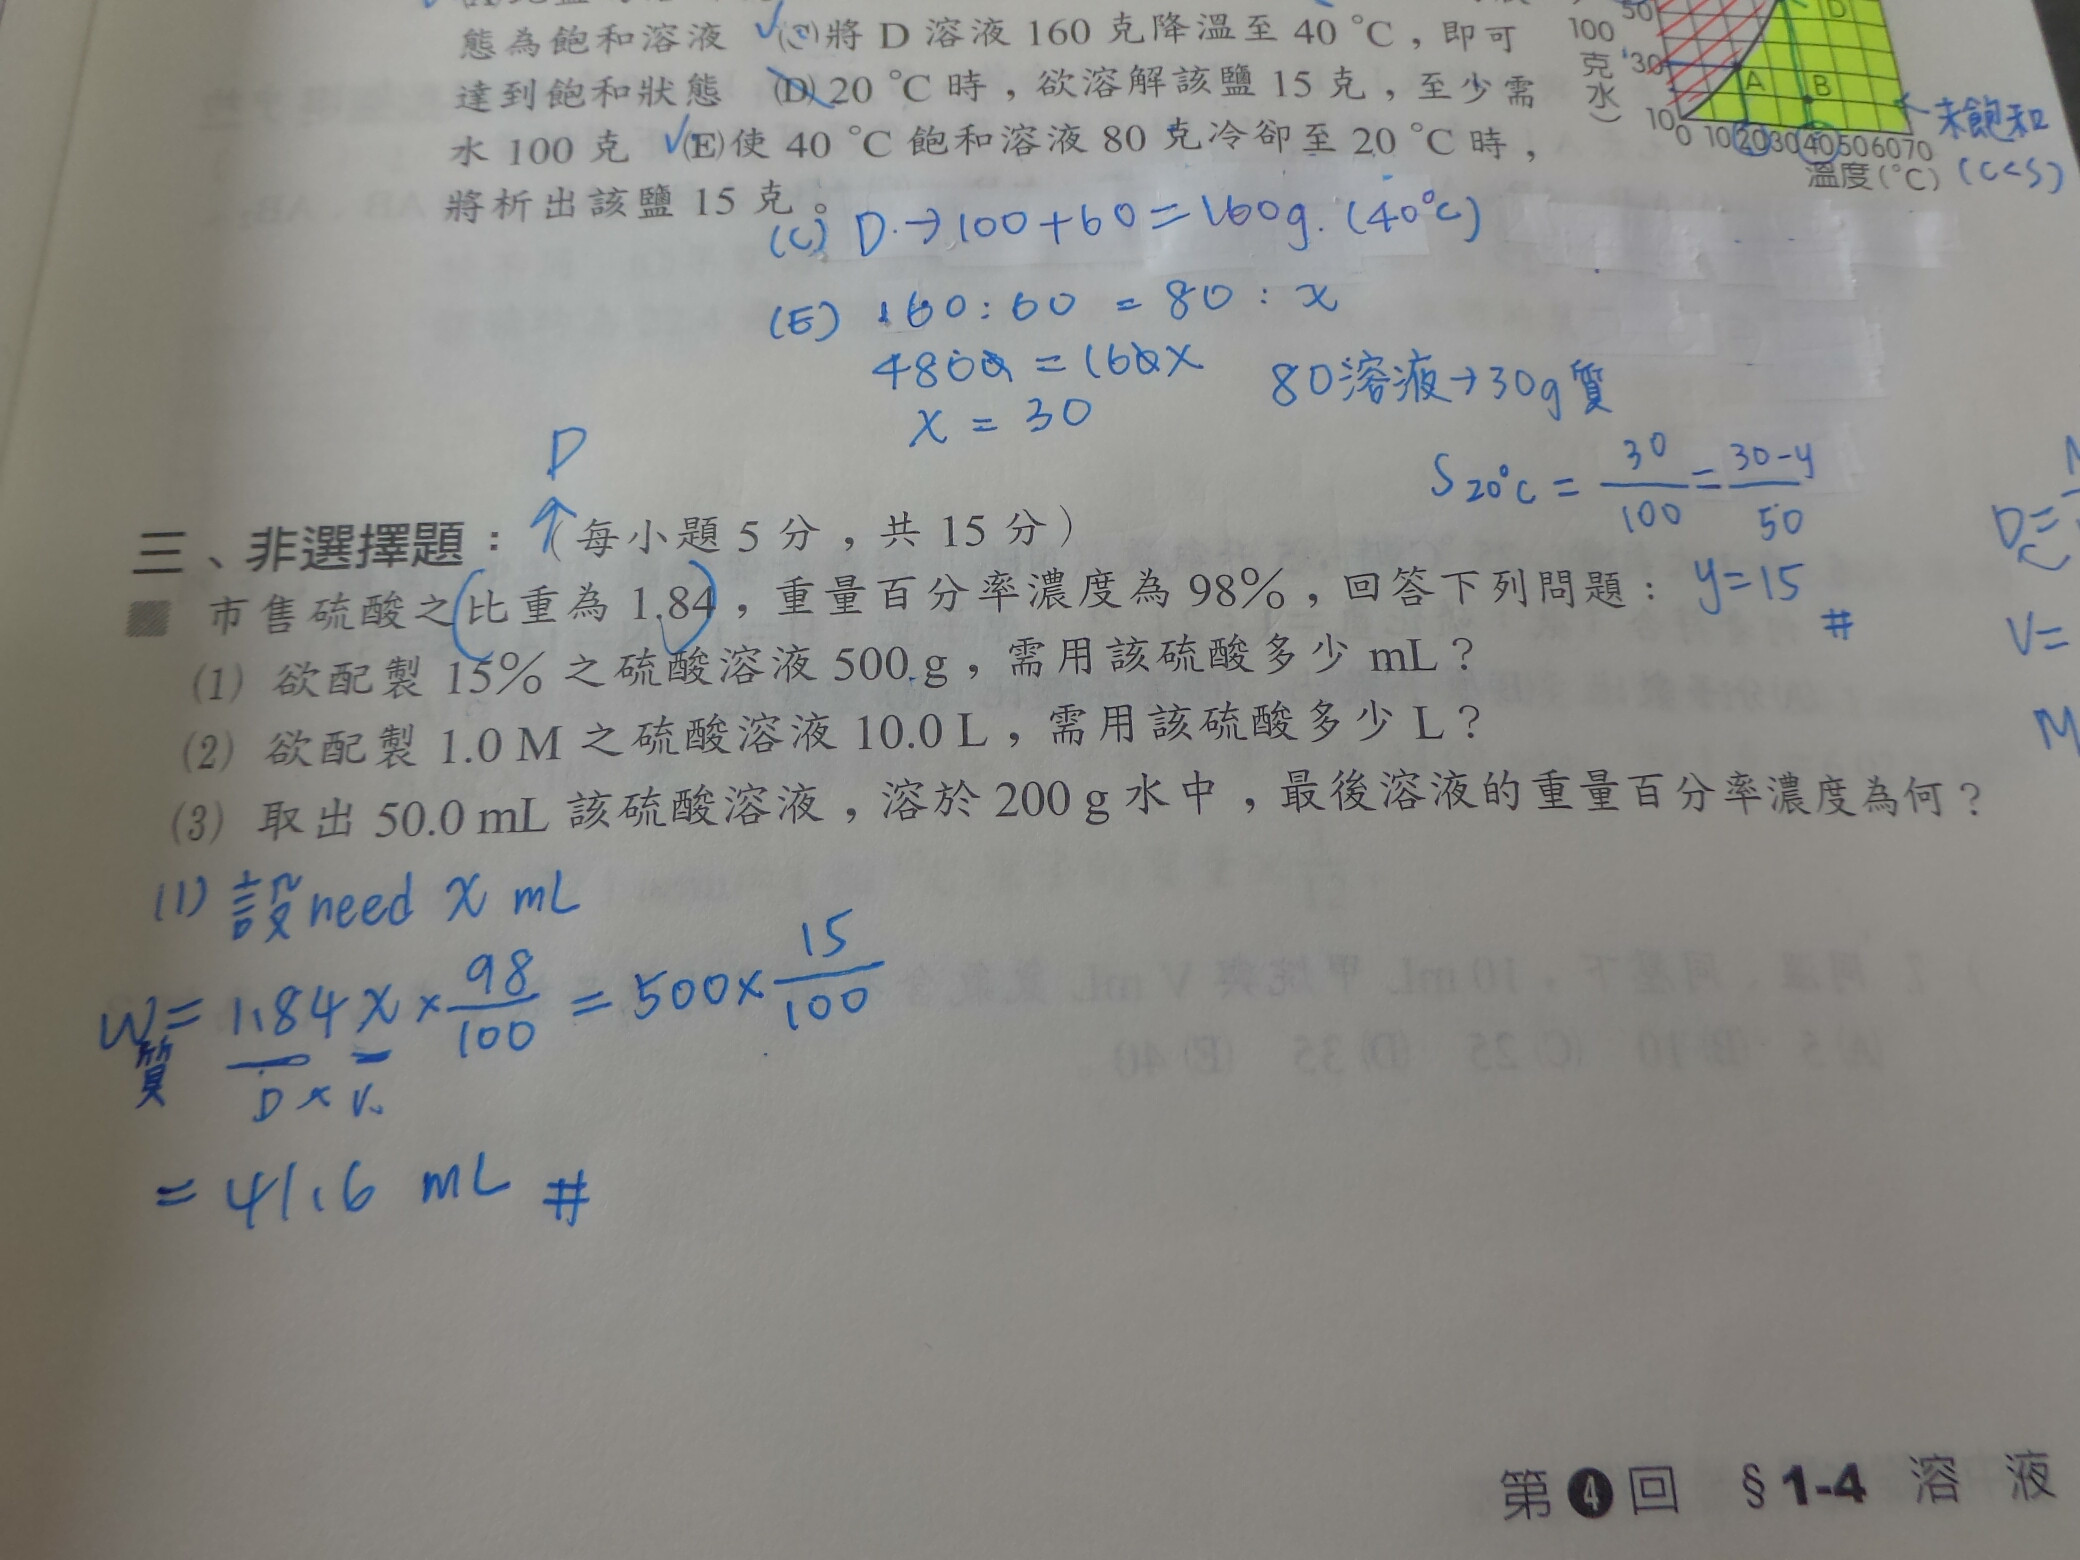 態為飽和溶液 (C)將 D 溶液 160 克降溫至 40 °C，即可
達到飽和狀態 (D) 20 °C 時，欲溶解該鹽 15 克，至少需
水 100 克 (E)使 40 °C 飽和溶液 80 克冷卻至 20 °C 時，
將析出該鹽 15 克。
50
100
克
水
)
30
10
D
A
B
0 10 20 30 40 50 60 70
溫度(°C)
未飽和
(C<S)
(C) D → 100 + 60 = 160g. (40°C)
(E) 160 : 60 = 80 : x
4800 = 160x
x = 30
80溶液→30g質
S20°C = 30/100 = 30-y/50
y = 15 #
D
↑
D=
V=
M
三、非選擇題：（每小題 5 分，共 15 分）
市售硫酸之比重為 1.84，重量百分率濃度為 98%，回答下列問題：
(1) 欲配製 15% 之硫酸溶液 500 g，需用該硫酸多少 mL？
(2) 欲配製 1.0 M 之硫酸溶液 10.0 L，需用該硫酸多少 L？
(3) 取出 50.0 mL 該硫酸溶液，溶於 200 g 水中，最後溶液的重量百分率濃度為何？
(1) 設need x mL
W質 = 1.84 x × 98/100 = 500 × 15/100
D × V
= 41.6 mL #
第4回 §1-4 溶 液